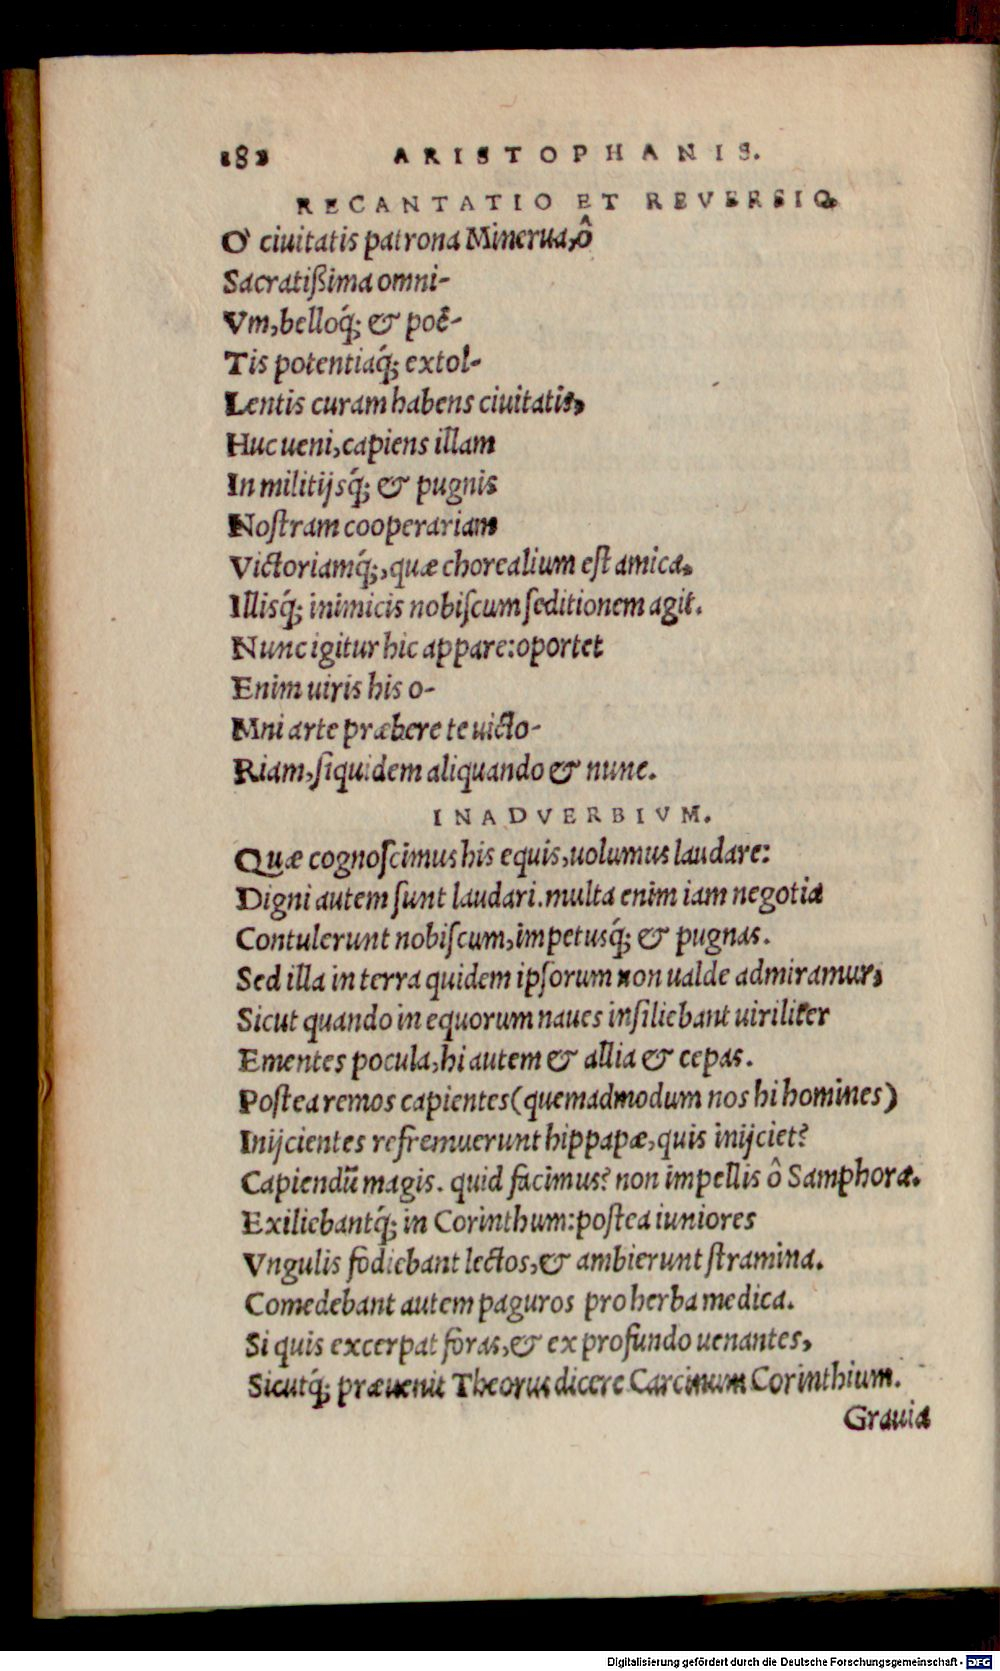 182 ARISTOPHANIS.
RECANTATIO ET REVERSIO.
O' ciuitatis patrona Minerua, ô
Sacratißima omni-
Vm, belloq́; & poë-
Tis potentiaq́; extol-
Lentis curam habens ciuitatis,
Huc ueni, capiens illam
In militijsq́; & pugnis
Noſtram cooperariam
Victoriamq́;, quæ chorealium eſt amica.
Illisq́; inimicis nobiſcum ſeditionem agit.
Nunc igitur hic appare: oportet
Enim uiris his o-
Mni arte præbere te uicto-
Riam, ſiquidem aliquando & nunc.
INADVERBIVM.
Quæ cognoſcimus his equis, uolumus laudare:
Digni autem ſunt laudari. multa enim iam negotia
Contulerunt nobiſcum, impetusq́; & pugnas.
Sed illa in terra quidem ipſorum non ualde admiramur,
Sicut quando in equorum naues inſiliebant uiriliter
Ementes pocula, hi autem & allia & cepas.
Poſtea remos capientes (quemadmodum nos hi homines)
Inijcientes refremuerunt hippapæ, quis inijciet?
Capiendū magis. quid facimus? non impellis ô Samphora.
Exiliebantq́; in Corinthum: poſtea iuniores
Vngulis fodiebant lectos, & ambierunt ſtramina.
Comedebant autem paguros pro herba medica.
Si quis excerpat foras, & ex profundo uenantes,
Sicutq́; præuenit Theorus dicere Carcinum Corinthium.
Grauia
Digitalisierung gefördert durch die Deutsche Forschungsgemeinschaft - DFG